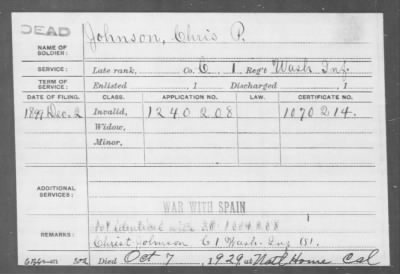 DEAD
NAME OF SOLDIER: Johnson, Chris P.
SERVICE: Late rank, Co. C, 1 Reg't Wash Inf
TERM OF SERVICE: Enlisted , 1 Discharged , 1
DATE OF FILING. CLASS. APPLICATION NO. LAW. CERTIFICATE NO.
1899 Dec. 2 Invalid, 1240208 1070214.
Widow,
Minor,
ADDITIONAL SERVICES:
WAR WITH SPAIN
REMARKS: Not identical with
Christ Johnson C 1 Wash. Inf
Died Oct 7, 1929 at Natl Home Cal